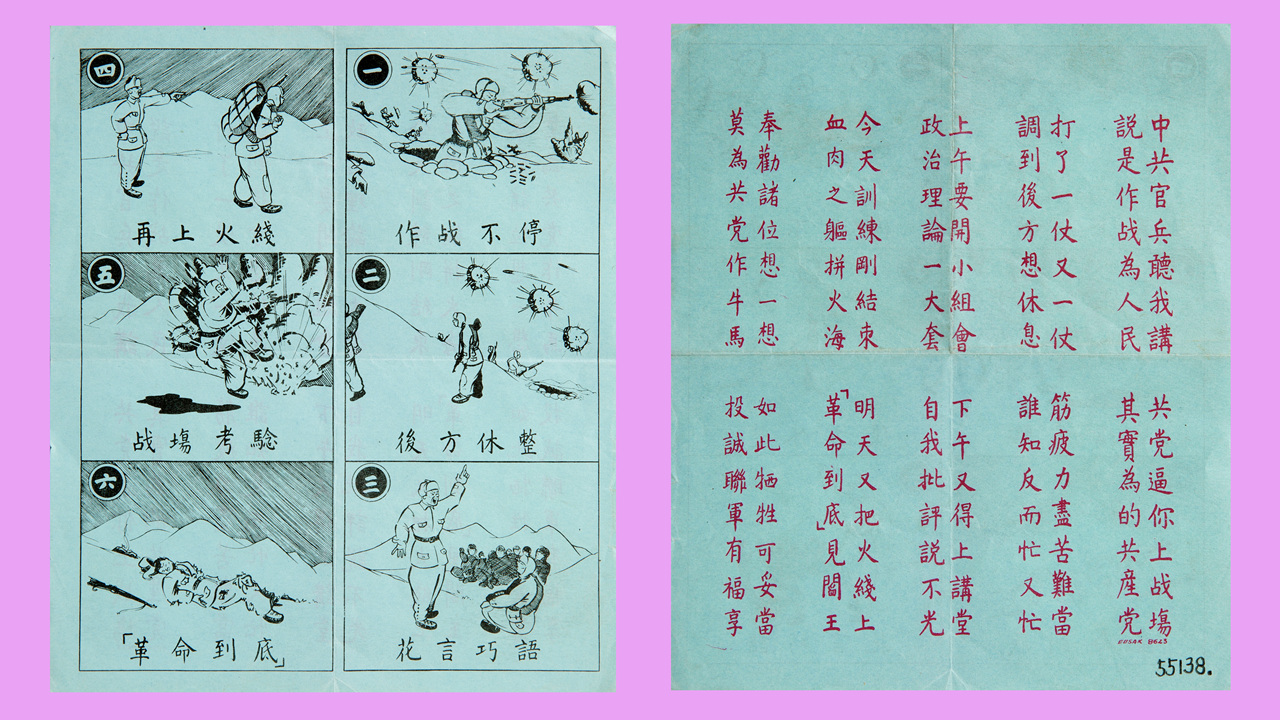 一
作战不停
二
後方休整
三
花言巧語
四
再上火綫
五
战塲考騐
六
「革命到底」
中共官兵聽我講 共党逼你上战塲
説是作战為人民 其實為的共産党
打了一仗又一仗 筋疲力盡苦難當
調到後方想休息 誰知反而忙又忙
上午要開小組會 下午又得上講堂
政治理論一大套 自我批評説不光
今天訓練剛結束 明天又把火綫上
血肉之軀拼火海 「革命到底」見閻王
奉勸諸位想一想 如此牺牲可妥當
莫為共党作牛馬 投誠聯軍有福享
EUSAK 8623
55138.